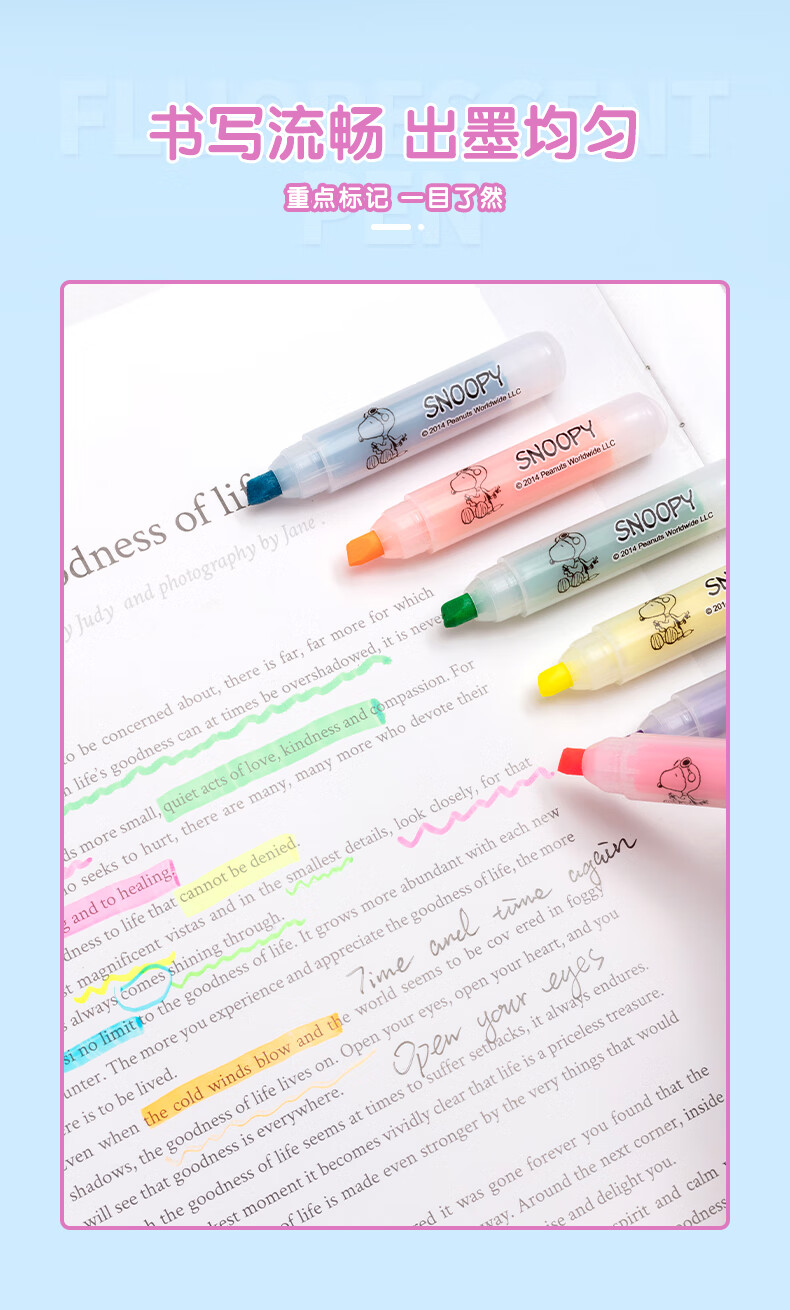 FLUORESCENT
PEN
书写流畅 出墨均匀
重点标记 一目了然
SNOOPY
© 2014 Peanuts Worldwide LLC
SNOOPY
© 2014 Peanuts Worldwide LLC
SNOOPY
© 2014 Peanuts Worldwide LLC
SN
© 201
odness of lif
y Judy and photography by Jane .
o be concerned about, there is far, far more for which
n life's goodness can at times be overshadowed, it is never
quiet acts of love, kindness and compassion. For
ds more small,
o seeks to hurt, there are many, many more who devote their
g and to healing;
dness to life that cannot be denied.
st magnificent vistas and in the smallest details, look closely, for that
s always comes shining through.
si no limit to the goodness of life. It grows more abundant with each new
unter. The more you experience and appreciate the goodness of life, the more
re is to be lived.
Time and time again
ven when the cold winds blow and the world seems to be cov ered in foggy
shadows, the goodness of life lives on. Open your eyes, open your heart, and you
will see that goodness is everywhere.
Open your eyes
h the goodness of life seems at times to suffer setbacks, it always endures.
kest moment it becomes vividly clear that life is a priceless treasure.
of life is made even stronger by the very things that would
ed it was gone forever you found that the
way. Around the next corner, inside
ise and delight you.
pirit and calm